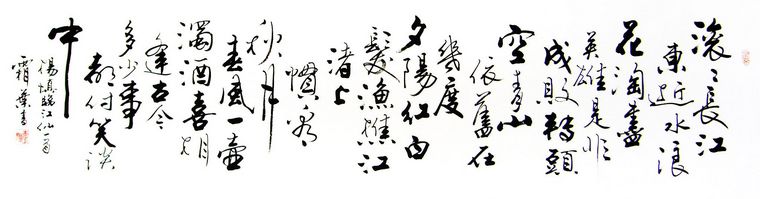 滚〻長江
東逝水浪
花淘盡
英雄是非
成敗轉頭
空青山
依舊在
幾度
夕陽紅白
髮漁樵江
渚上
慣看
秋月
春風一壺
濁酒喜相
逢古今
多少事
都付笑談
中
楊慎臨江仙一首
霜葉書